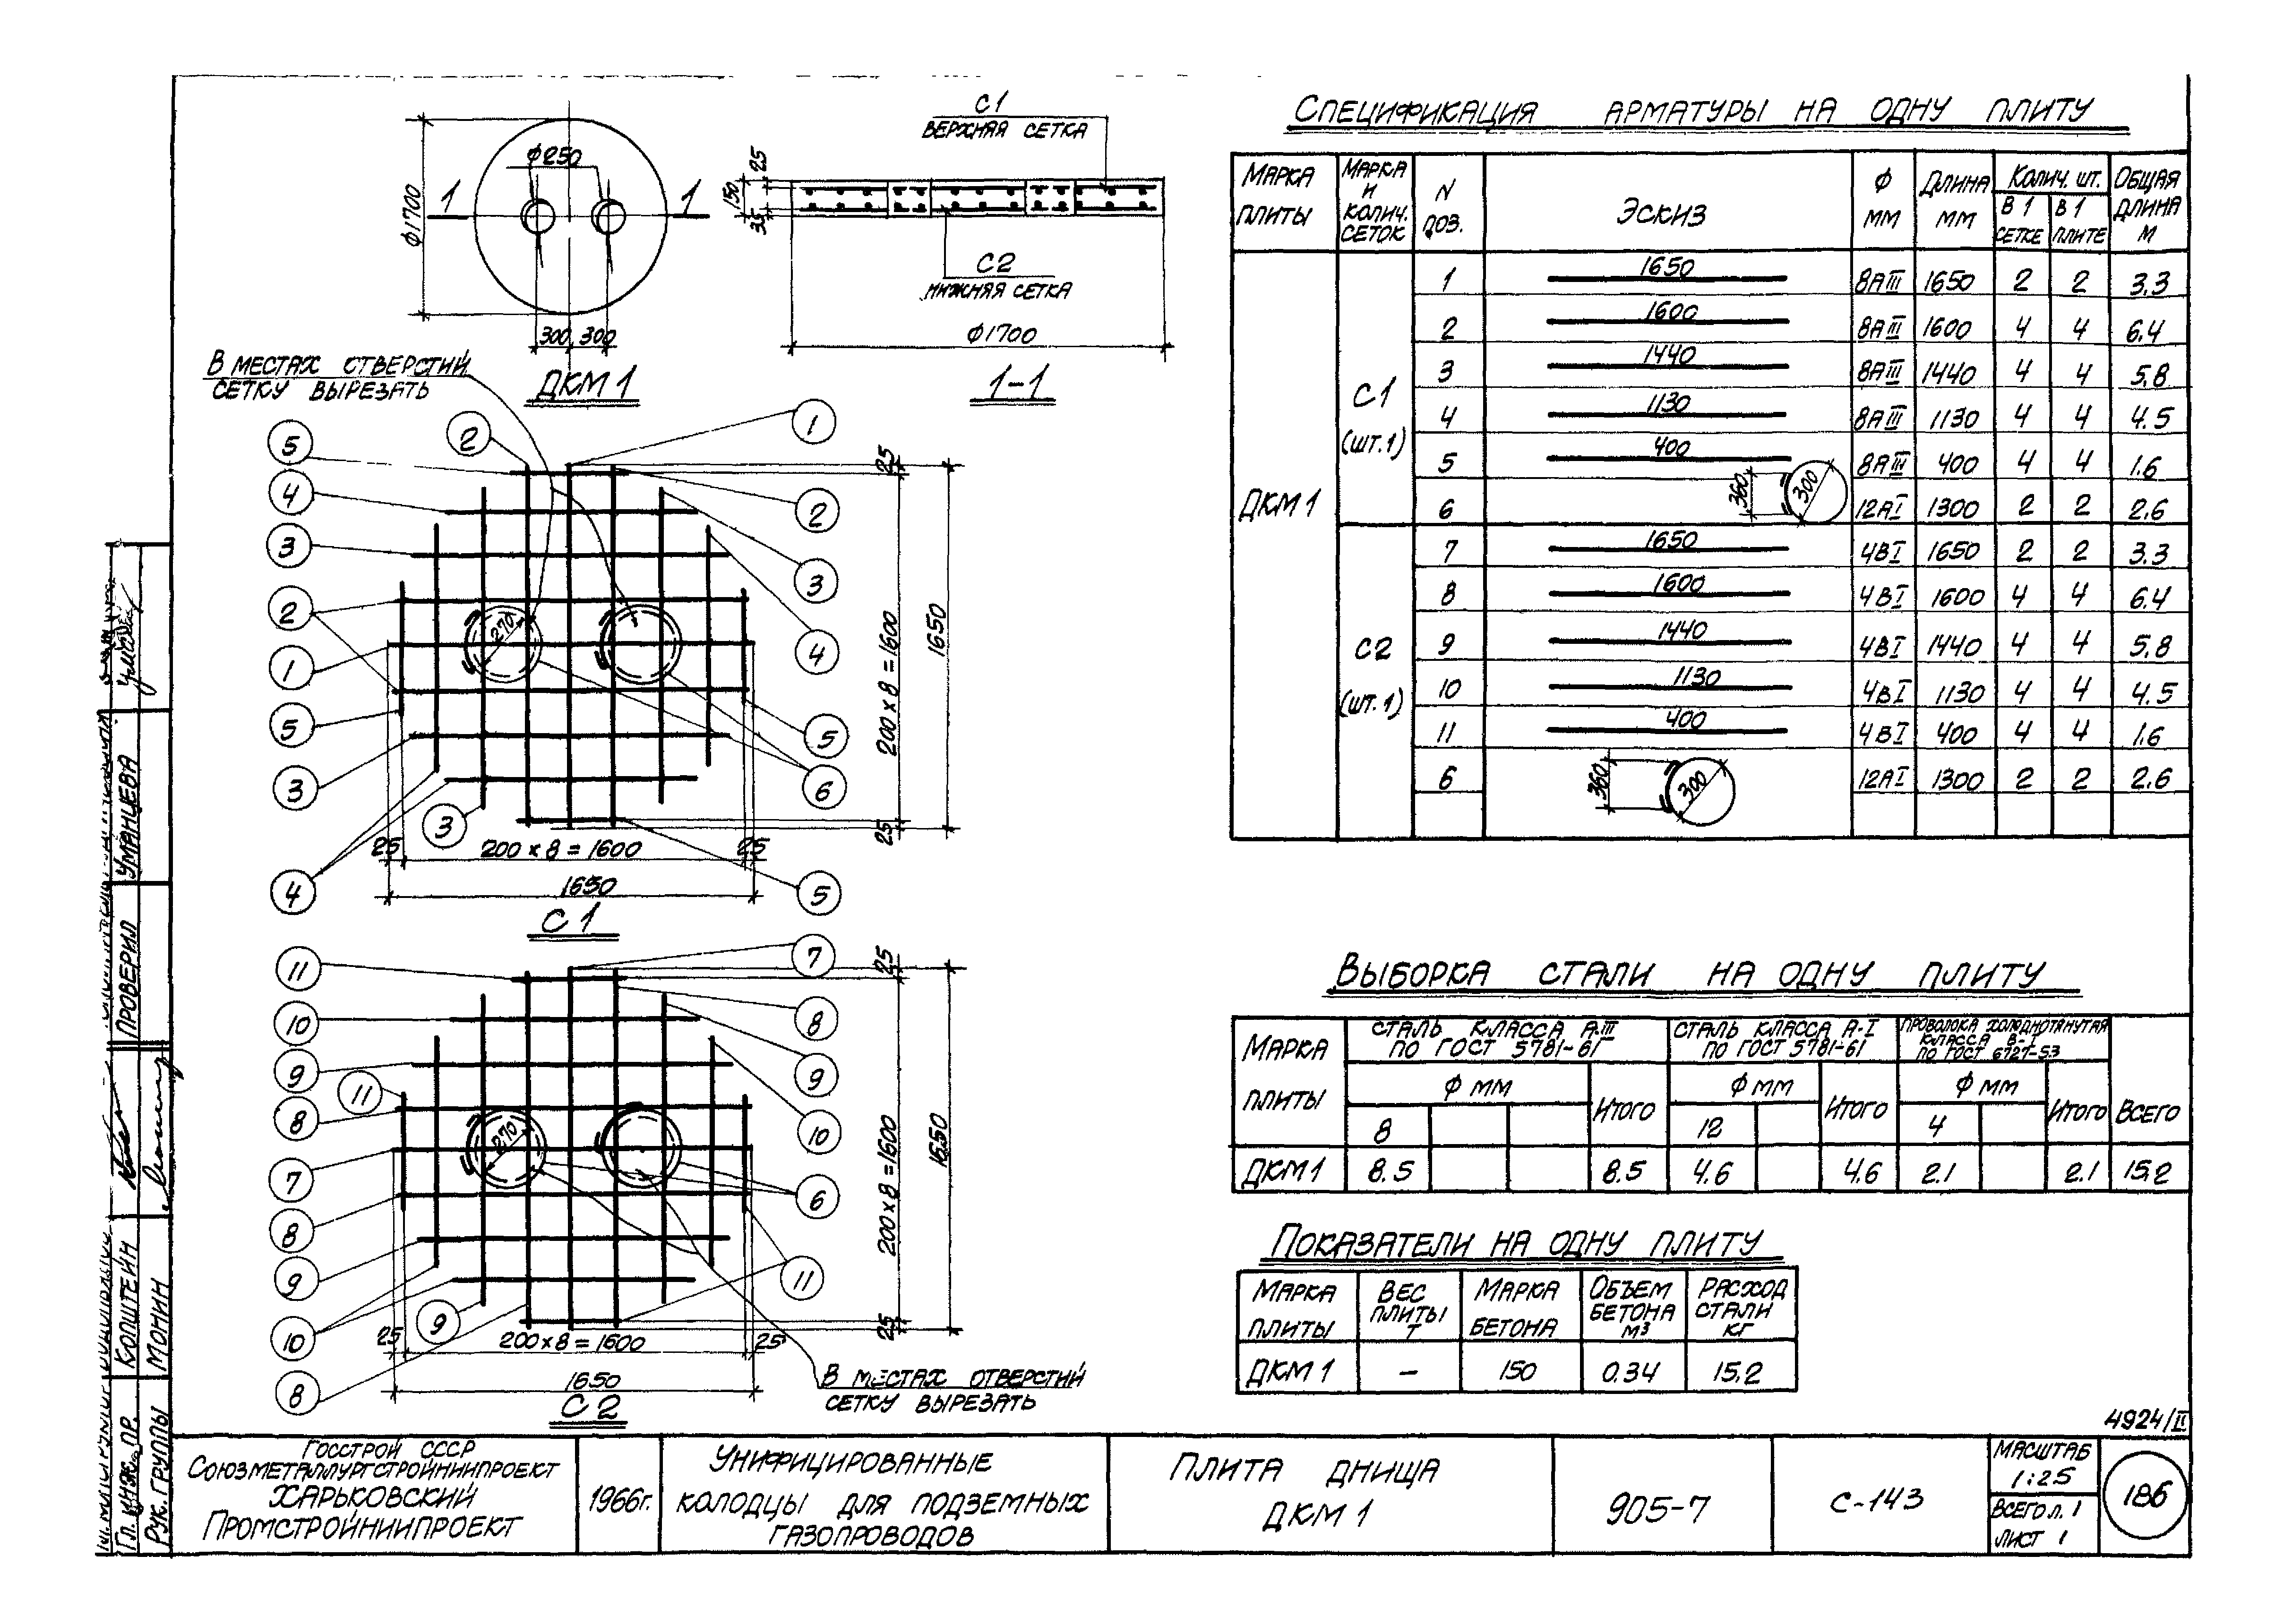 С1
ВЕРХНЯЯ СЕТКА
Ф250
Ф1700
1 1
300 300
ДКМ1
25
150
35
С2
НИЖНЯЯ СЕТКА
Ф1700
1-1
В МЕСТАХ ОТВЕРСТИЙ
СЕТКУ ВЫРЕЗАТЬ
5
4
3
2
1
5
3
4
2
3
1
2
3
4
5
6
5
270
25
200 х 8 = 1600
25
1650
25 200 х 8 = 1600 25
1650
С1
11
10
9
11
8
7
8
9
10
8
9
7
8
9
10
6
11
270
25
200 х 8 = 1600
25
1650
25 200 х 8 = 1600 25
1650
С2
В МЕСТАХ ОТВЕРСТИЙ
СЕТКУ ВЫРЕЗАТЬ
СПЕЦИФИКАЦИЯ АРМАТУРЫ НА ОДНУ ПЛИТУ
МАРКА ПЛИТЫ МАРКА И КОЛИЧ. СЕТОК N ПОЗ. ЭСКИЗ Ф ММ ДЛИНА ММ КОЛИЧ. ШТ. В 1 СЕТКЕ В 1 ПЛИТЕ ОБЩАЯ ДЛИНА М
ДКМ1
С1
(ШТ.1)
1 1650 8АIII 1650 2 2 3.3
2 1600 8АIII 1600 4 4 6.4
3 1440 8АIII 1440 4 4 5.8
4 1130 8АIII 1130 4 4 4.5
5 400 8АIII 400 4 4 1.6
6 360 300 12АI 1300 2 2 2.6
С2
(ШТ.1)
7 1650 4ВI 1650 2 2 3.3
8 1600 4ВI 1600 4 4 6.4
9 1440 4ВI 1440 4 4 5.8
10 1130 4ВI 1130 4 4 4.5
11 400 4ВI 400 4 4 1.6
6 360 300 12АI 1300 2 2 2.6
ВЫБОРКА СТАЛИ НА ОДНУ ПЛИТУ
МАРКА ПЛИТЫ
СТАЛЬ КЛАССА А-III
ПО ГОСТ 5781-61
СТАЛЬ КЛАССА А-I
ПО ГОСТ 5781-61
ПРОВОЛОКА ХОЛОДНОТЯНУТАЯ
КЛАССА В-I
ПО ГОСТ 6727-53
Ф ММ ИТОГО Ф ММ ИТОГО Ф ММ ИТОГО ВСЕГО
8 12 4
ДКМ1 8.5 8.5 4.6 4.6 2.1 2.1 15,2
ПОКАЗАТЕЛИ НА ОДНУ ПЛИТУ
МАРКА ПЛИТЫ ВЕС ПЛИТЫ Т МАРКА БЕТОНА ОБЪЕМ БЕТОНА М³ РАСХОД СТАЛИ КГ
ДКМ1 — 150 0.34 15,2
4924/II
ГОССТРОЙ СССР
СОЮЗМЕТАЛЛУРГСТРОЙНИИПРОЕКТ
ХАРЬКОВСКИЙ
ПРОМСТРОЙНИИПРОЕКТ
1966г.
УНИФИЦИРОВАННЫЕ
КОЛОДЦЫ ДЛЯ ПОДЗЕМНЫХ
ГАЗОПРОВОДОВ
ПЛИТА ДНИЩА
ДКМ1
905-7
С-143
МАСШТАБ
1:25
ВСЕГО Л. 1
ЛИСТ 1
186
ПРОВЕРИЛ УМАНЦЕВА
ГЛ. ИНЖ. ПР. КОПШТЕЙН
РУК. ГРУППЫ МОНИН